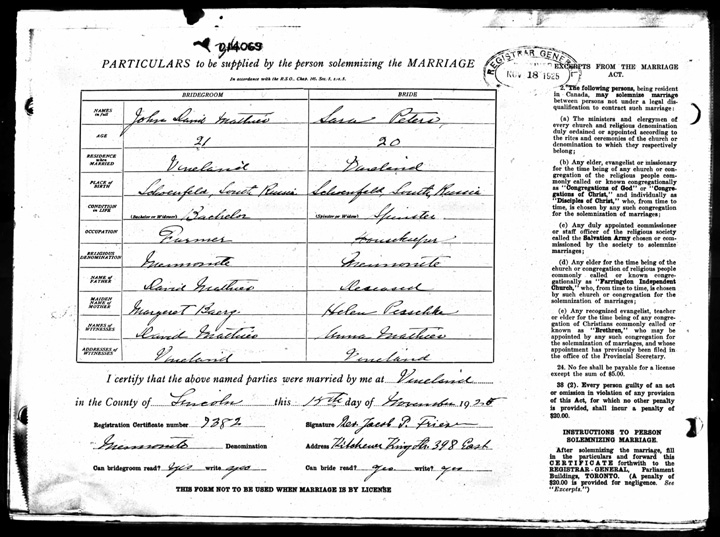 014069
PARTICULARS to be supplied by the person solemnizing the MARRIAGE
In accordance with the R.S.O., Chap.
BRIDEGROOM BRIDE
NAMES in full John David Mathies Sara Peters,
AGE 21 20
RESIDENCE when MARRIED Vineland Vineland
PLACE OF BIRTH Schoenfeld, South Russia Schoenfeld, South Russia
CONDITION IN LIFE (Bachelor or Widower) Bachelor (Spinster or Widow) Spinster
OCCUPATION Farmer Housekeeper
RELIGIOUS DENOMINATION Mennonite Mennonite
NAME OF FATHER David Mathies Deceased
MAIDEN NAME OF MOTHER Margaret Baerg. Helen
NAMES OF WITNESSES David Mathies Anna Mathies
ADDRESSES OF WITNESSES Vineland Vineland
I certify that the above named parties were married by me at Vineland
in the County of Lincoln this day of November 1925
Registration Certificate number 9382 Signature Rev. Jacob P. Friesen
Mennonite Denomination Address Kitchener King Str. 398 East
Can bridegroom read? yes write yes Can bride read? yes write? yes
THIS FORM NOT TO BE USED WHEN MARRIAGE IS BY LICENSE
REGISTRAR GENERAL
NOV 18 1925
EXCERPTS FROM THE MARRIAGE
ACT.
2. The following persons, being resident
in Canada, may solemnize marriage
between persons not under a legal dis-
qualification to contract such marriage:
(a) The ministers and clergymen of
every church and religious denomination
duly ordained or appointed according to
the rites and ceremonies of the church or
denomination to which they respectively
belong;
(b) Any elder, evangelist or missionary
for the time being of any church or con-
gregation of the religious people com-
monly called or known congregationally
as "Congregations of God" or "Congre-
gations of Christ," and individually as
"Disciples of Christ," who, from time to
time, is chosen by any such congregation
for the solemnization of marriages;
(c) Any duly appointed commissioner
or staff officer of the religious society
called the Salvation Army chosen or com-
missioned by the society to solemnize
marriages;
(d) Any elder for the time being of the
church or congregation of religious people
commonly called or known congre-
gationally as "Farringdon Independent
Church," who, from time to time, is chosen
by such church or congregation for the
solemnization of marriages;
(e) Any recognized evangelist, teacher
or elder for the time being of any congre-
gation of Christians commonly called or
known as "Brethren," who may be
appointed by any such congregation for
the solemnization of marriages, and whose
appointment has previously been filed in
the office of the Provincial Secretary.
24. No fee shall be payable for a license
except the sum of $5.00.
38 (2). Every person guilty of an act
or omission in violation of any provision
of this Act, for which no other penalty
is provided, shall incur a penalty of
$20.00.
INSTRUCTIONS TO PERSON
SOLEMNIZING MARRIAGE.
After solemnizing the marriage, fill
in the particulars and forward this
CERTIFICATE forthwith to the
REGISTRAR-GENERAL, Parliament
Buildings, TORONTO. (A penalty of
$20.00 is provided for negligence. See
"Excerpts.")